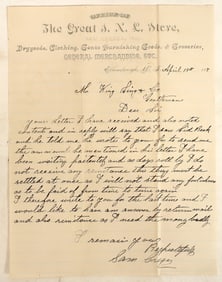 OFFICE OF
The Great I. X. L. Store,
Drygoods, Clothing, Gents Furnishing Goods, & Groceries,
GENERAL MERCHANDISE, ETC.
April 19th 18
Mr. King
Gentlemen
Dear Sir
your letter I have received and also noted
contents and in reply will say that I saw
and he told me he wrote to you he to send me
the amount he mentioned in his letter I have
been waiting patiently and as days roll by I do
not receive any remittance this thing must be
settled at once as I will not stand any
as to be paid of from time to time again
I therefore write to you for the last time and I
would like to have an answer by return mail
and also remittance as I need the money badly
I remain yours
Respectfully
Sam